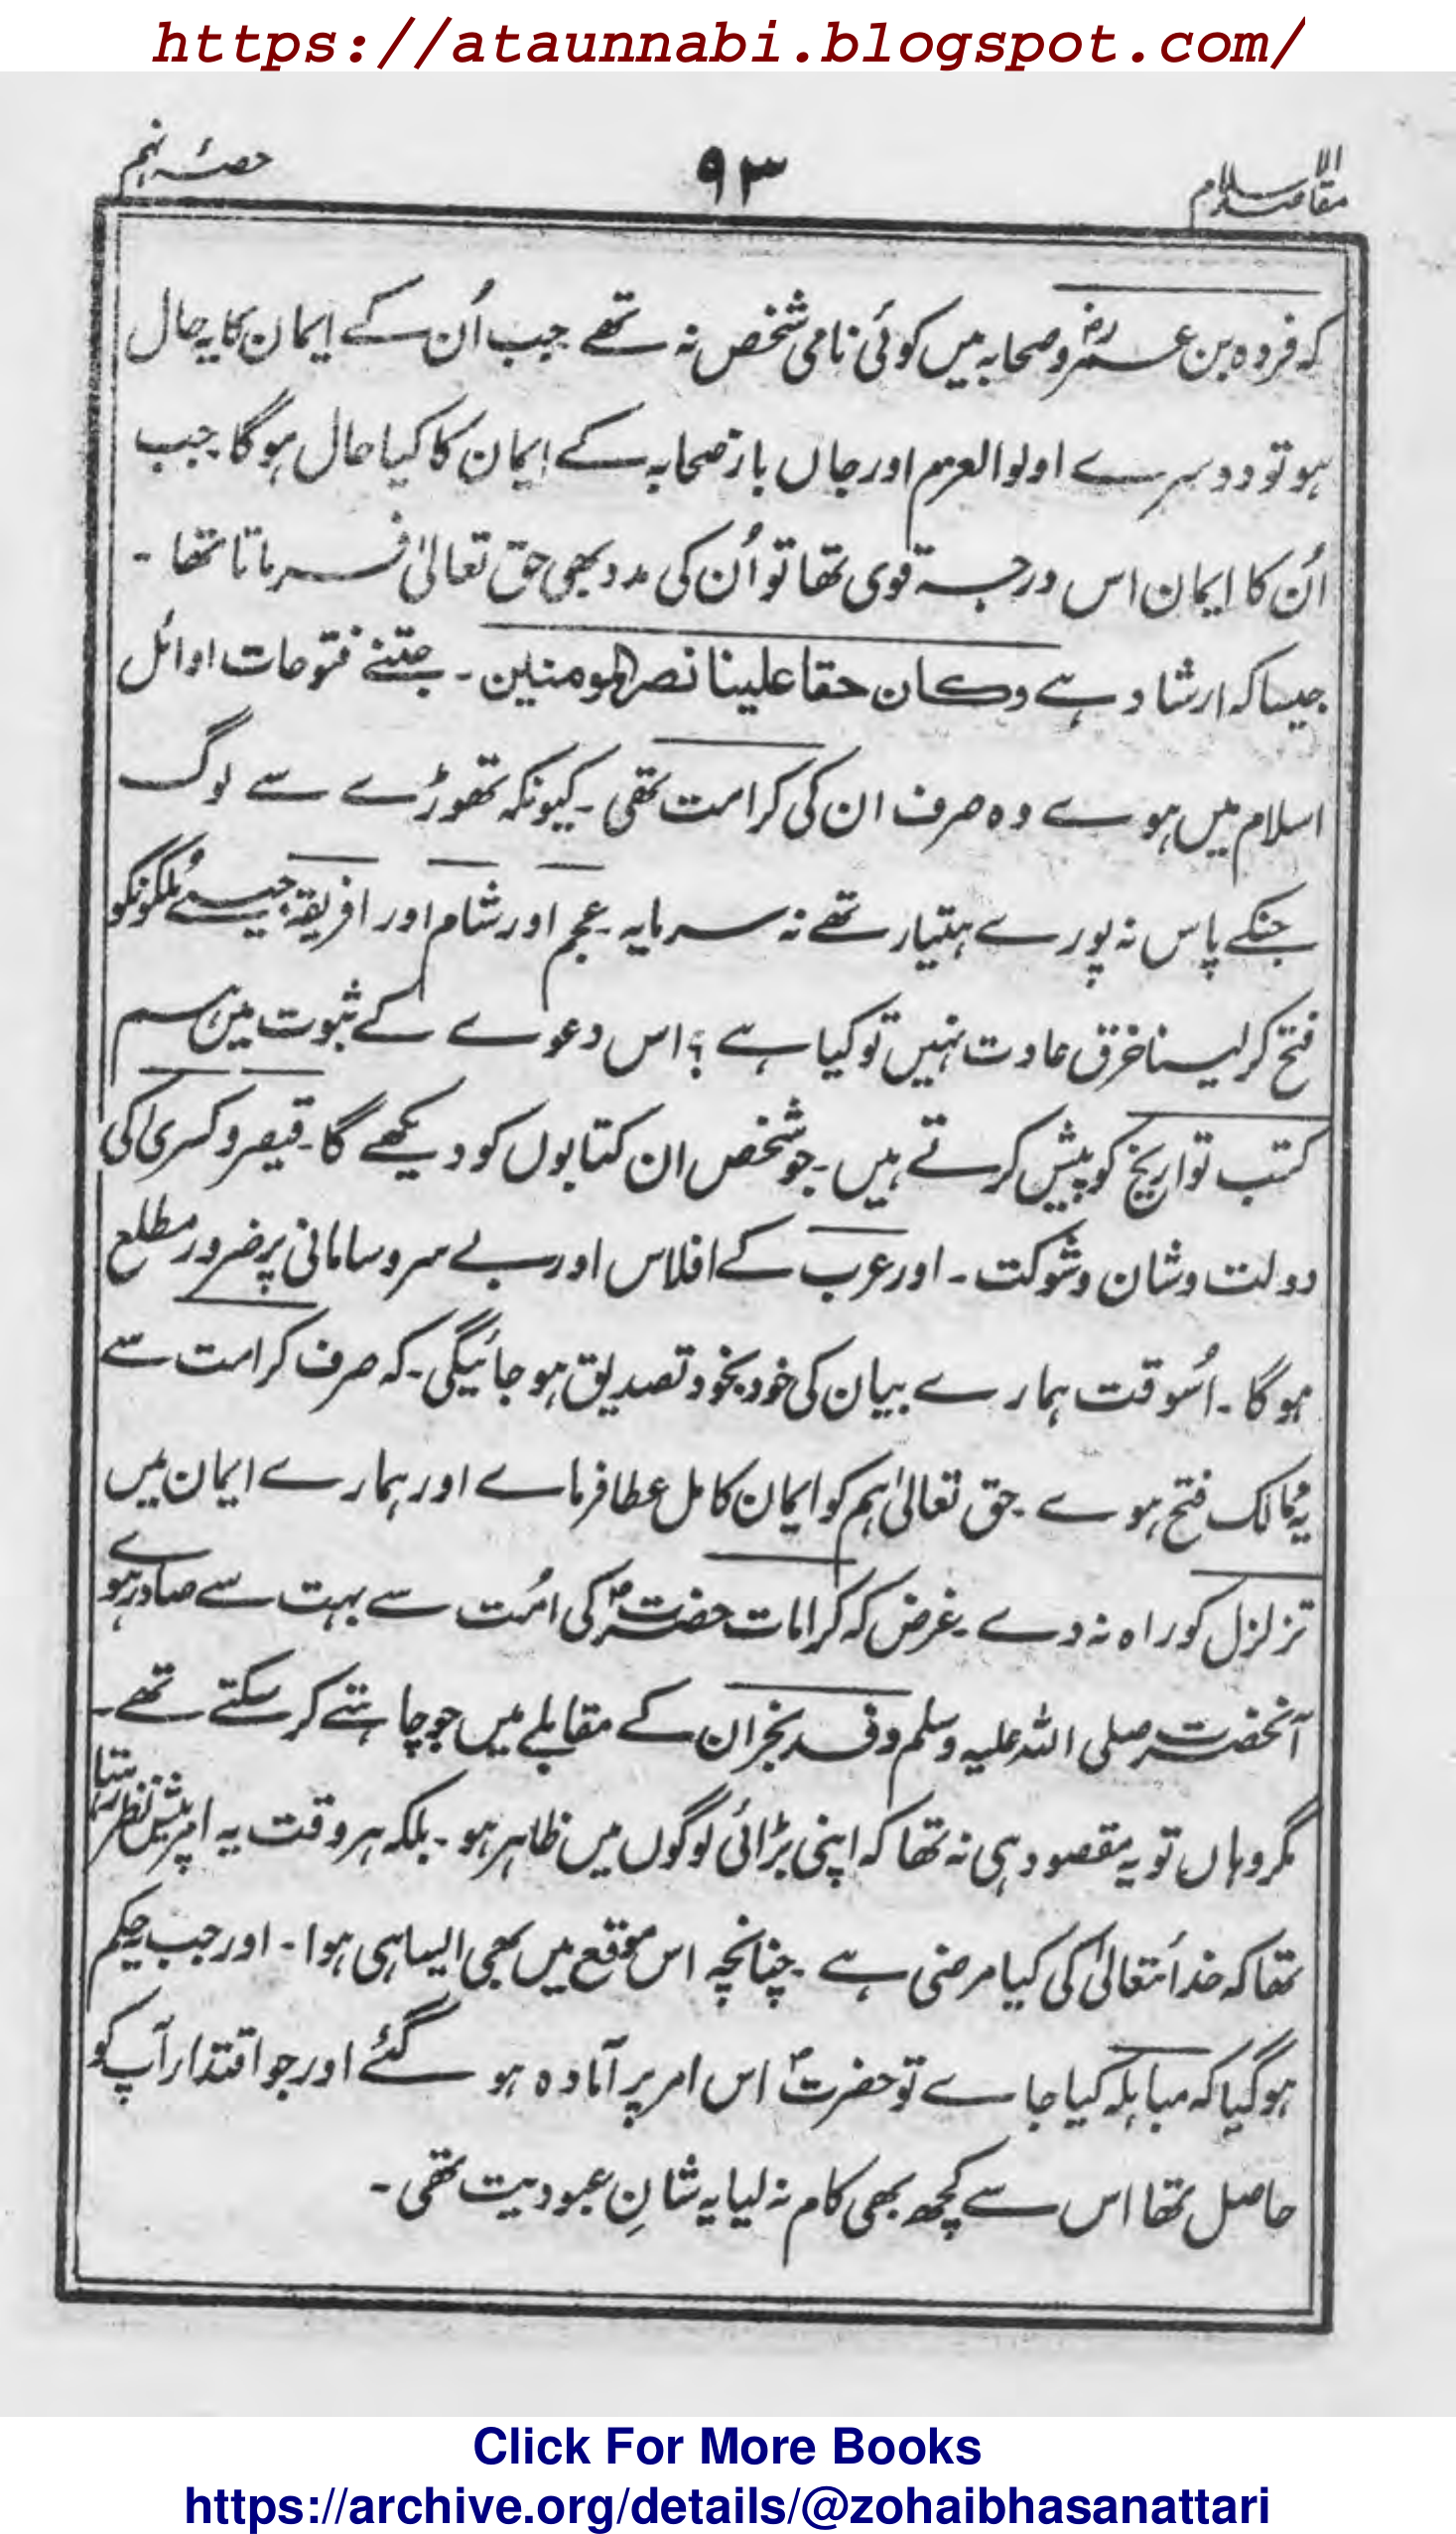 https://ataunnabi.blogspot.com/
مقاصد الاسلام
۹۳
حصۂ نہم
کہ فروہ بن عمروؓ صحابہ میں کوئی نامی شخص نہ تھے جب اُن کے ایمان کا یہ حال
ہو تو دوسرے اولوالعزم اور جاں باز صحابہ کے ایمان کا کیا حال ہوگا۔ جب
اُن کا ایمان اس درجہ قوی تھا تو اُن کی مدد بھی حق تعالیٰ فرماتا تھا ۔
جیسا کہ ارشاد ہے وکان حقا علینا نصر المومنین ۔ جتنے فتوحات اوائل
اسلام میں ہوے وہ صرف ان کی کرامت تھی ۔ کیونکہ تھوڑے سے لوگ
جنکے پاس نہ پورے ہتیار تھے نہ سرمایہ ۔ عجم اور شام اور افریقہ جیسے مُلکونکو
فتح کر لینا خرق عادت نہیں تو کیا ہے ؟ اس دعوے کے ثبوت میں ہم
کتب تواریخ کو پیش کرتے ہیں ۔ جو شخص ان کتابوں کو دیکھے گا ۔ قیصر و کسریٰ کی
دولت و شان و شوکت ۔ اور عرب کے افلاس اور بے سر و سامانی پر ضرور مطلع
ہوگا ۔ اُسوقت ہمارے بیان کی خود بخود تصدیق ہو جائیگی ۔ کہ صرف کرامت سے
یہ ممالک فتح ہوے ۔ حق تعالیٰ ہم کو ایمان کامل عطا فرماے اور ہمارے ایمان میں
تزلزل کو راہ نہ دے ۔ غرض کہ کرامات حضرتؐ کی اُمت سے بہت سے صادر ہوے
آنحضرت صلی اللہ علیہ وسلم وفد نجران کے مقابلے میں جو چاہتے کر سکتے تھے ۔
مگر وہاں تو یہ مقصود ہی نہ تھا کہ اپنی بڑائی لوگوں میں ظاہر ہو ۔ بلکہ ہر وقت یہ امر پیش نظر رہتا
تھا کہ خدائتعالیٰ کی کیا مرضی ہے ۔ چنانچہ اس موقع میں بھی ایسا ہی ہوا ۔ اور جب یہ حکم
ہو گیا کہ مباہلہ کیا جاے تو حضرتؐ اس امر پر آمادہ ہو گئے اور جو اقتدار آپ کو
حاصل تھا اس سے کچھ بھی کام نہ لیا یہ شانِ عبودیت تھی ۔
Click For More Books
https://archive.org/details/@zohaibhasanattari